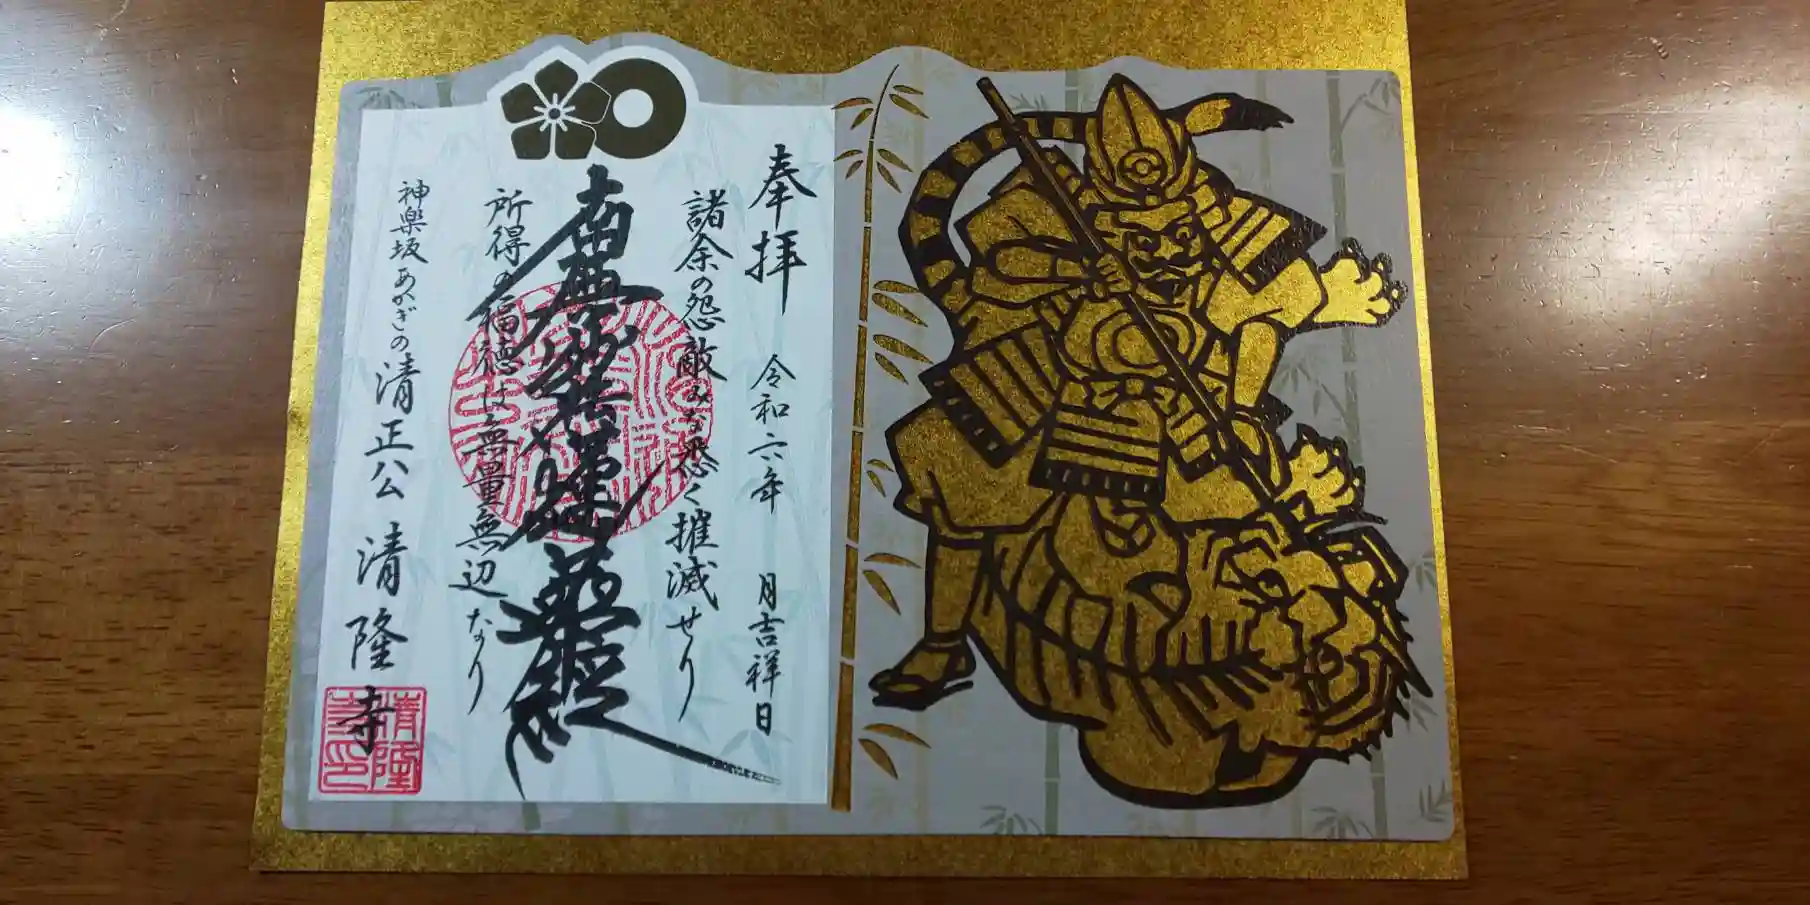 奉拝　令和六年　月吉祥日
諸余の怨敵みな悉く摧滅せり
南無妙法蓮華経
所得の福徳は無量無辺なり
神楽坂あかぎの清正公　清隆寺
清隆寺印